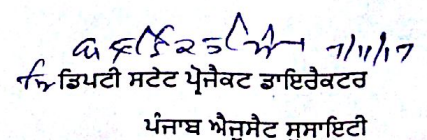 7/11/17
ਡਿਪਟੀ ਸਟੇਟ ਪ੍ਰੋਜੈਕਟ ਡਾਇਰੈਕਟਰ
ਪੰਜਾਬ ਐਜੂਸੈਟ ਸੁਸਾਇਟੀ